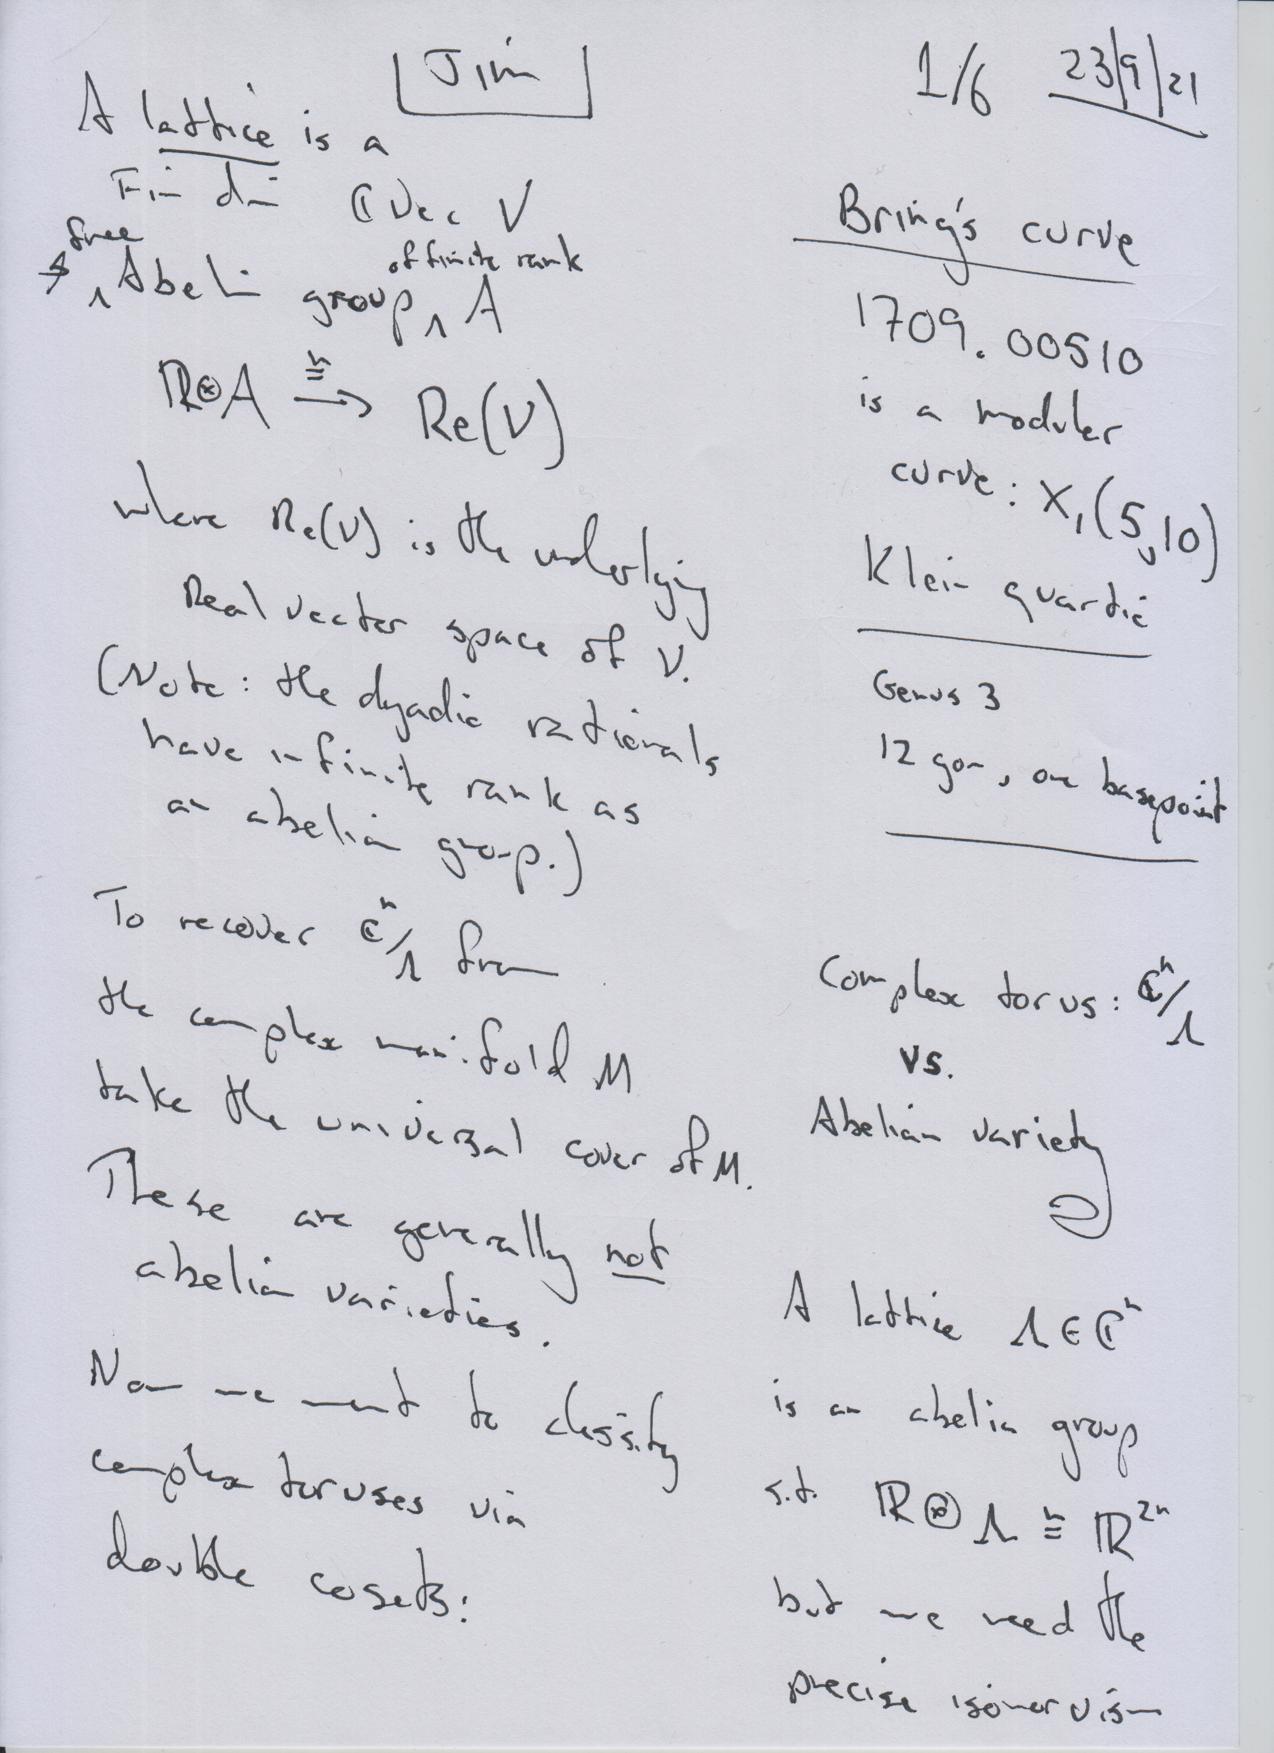 Jim
1/6 23/9/21
A lattice is a
Fin dim ℂVec V
free
of finite rank
→ ∧ Abelian group ∧ A
ℝ⊗A ≅ → Re(V)
where Re(V) is the underlying
Real vector space of V.
(Note: the dyadic rationals
have infinite rank as
an abelian group.)
To recover ℂⁿ/Λ from
the complex manifold M
take the universal cover of M.
These are generally not
abelian varieties.
Now we want to classify
complex toruses via
double cosets:
Bring's curve
1709.00510
is a moduler
curve: X₁(5,10)
Klein quartic
Genus 3
12 gon, one basepoint
Complex torus: ℂⁿ/Λ
vs.
Abelian variety
A lattice Λ∈ℂⁿ
is an abelian group
s.t. ℝ⊗Λ ≅ ℝ²ⁿ
but we need the
precise isomorvism